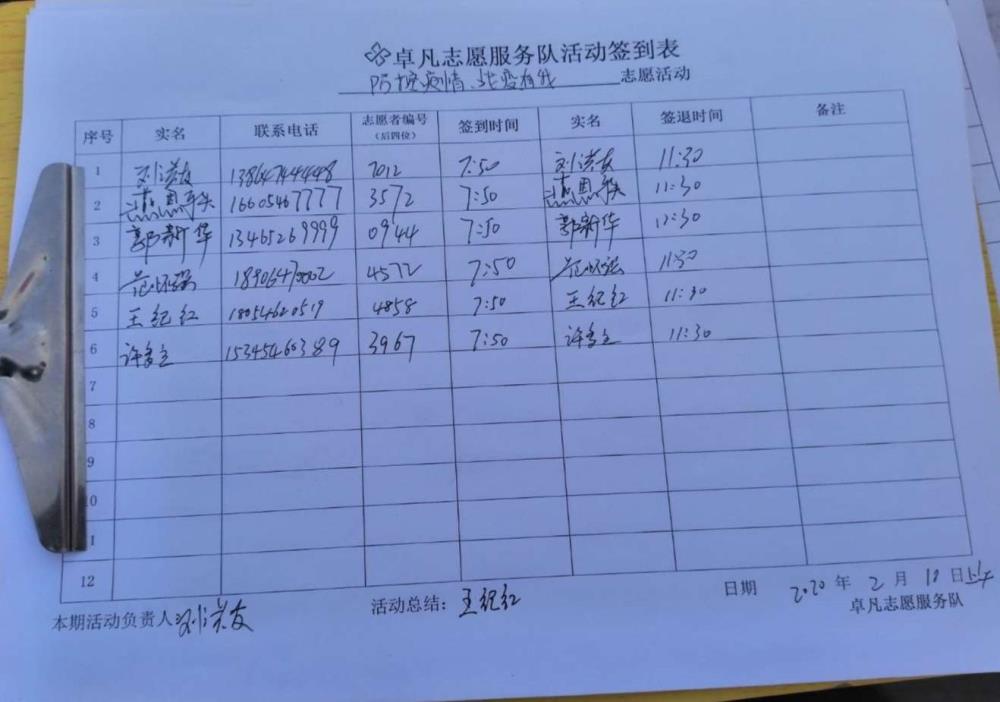 卓凡志愿服务队活动签到表
防控疫情、战疫有我 志愿活动
序号 实名 联系电话 志愿者编号（后四位） 签到时间 实名 签退时间 备注
1 刘洪友 13864744448 7012 7:50 刘洪友 11:30
2 16605467777 3572 7:50 11:30
3 郭新华 13465269999 0944 7:50 郭新华 11:30
4 范怀强 4572 7:50 范怀强 11:30
5 王纪红 18054620519 4858 7:50 王纪红 11:30
6 15345460389 3967 7:50 11:30
7
8
9
10
12
本期活动负责人 刘洪友 活动总结： 王纪红 日期 2020 年 2 月 10 日上午
卓凡志愿服务队